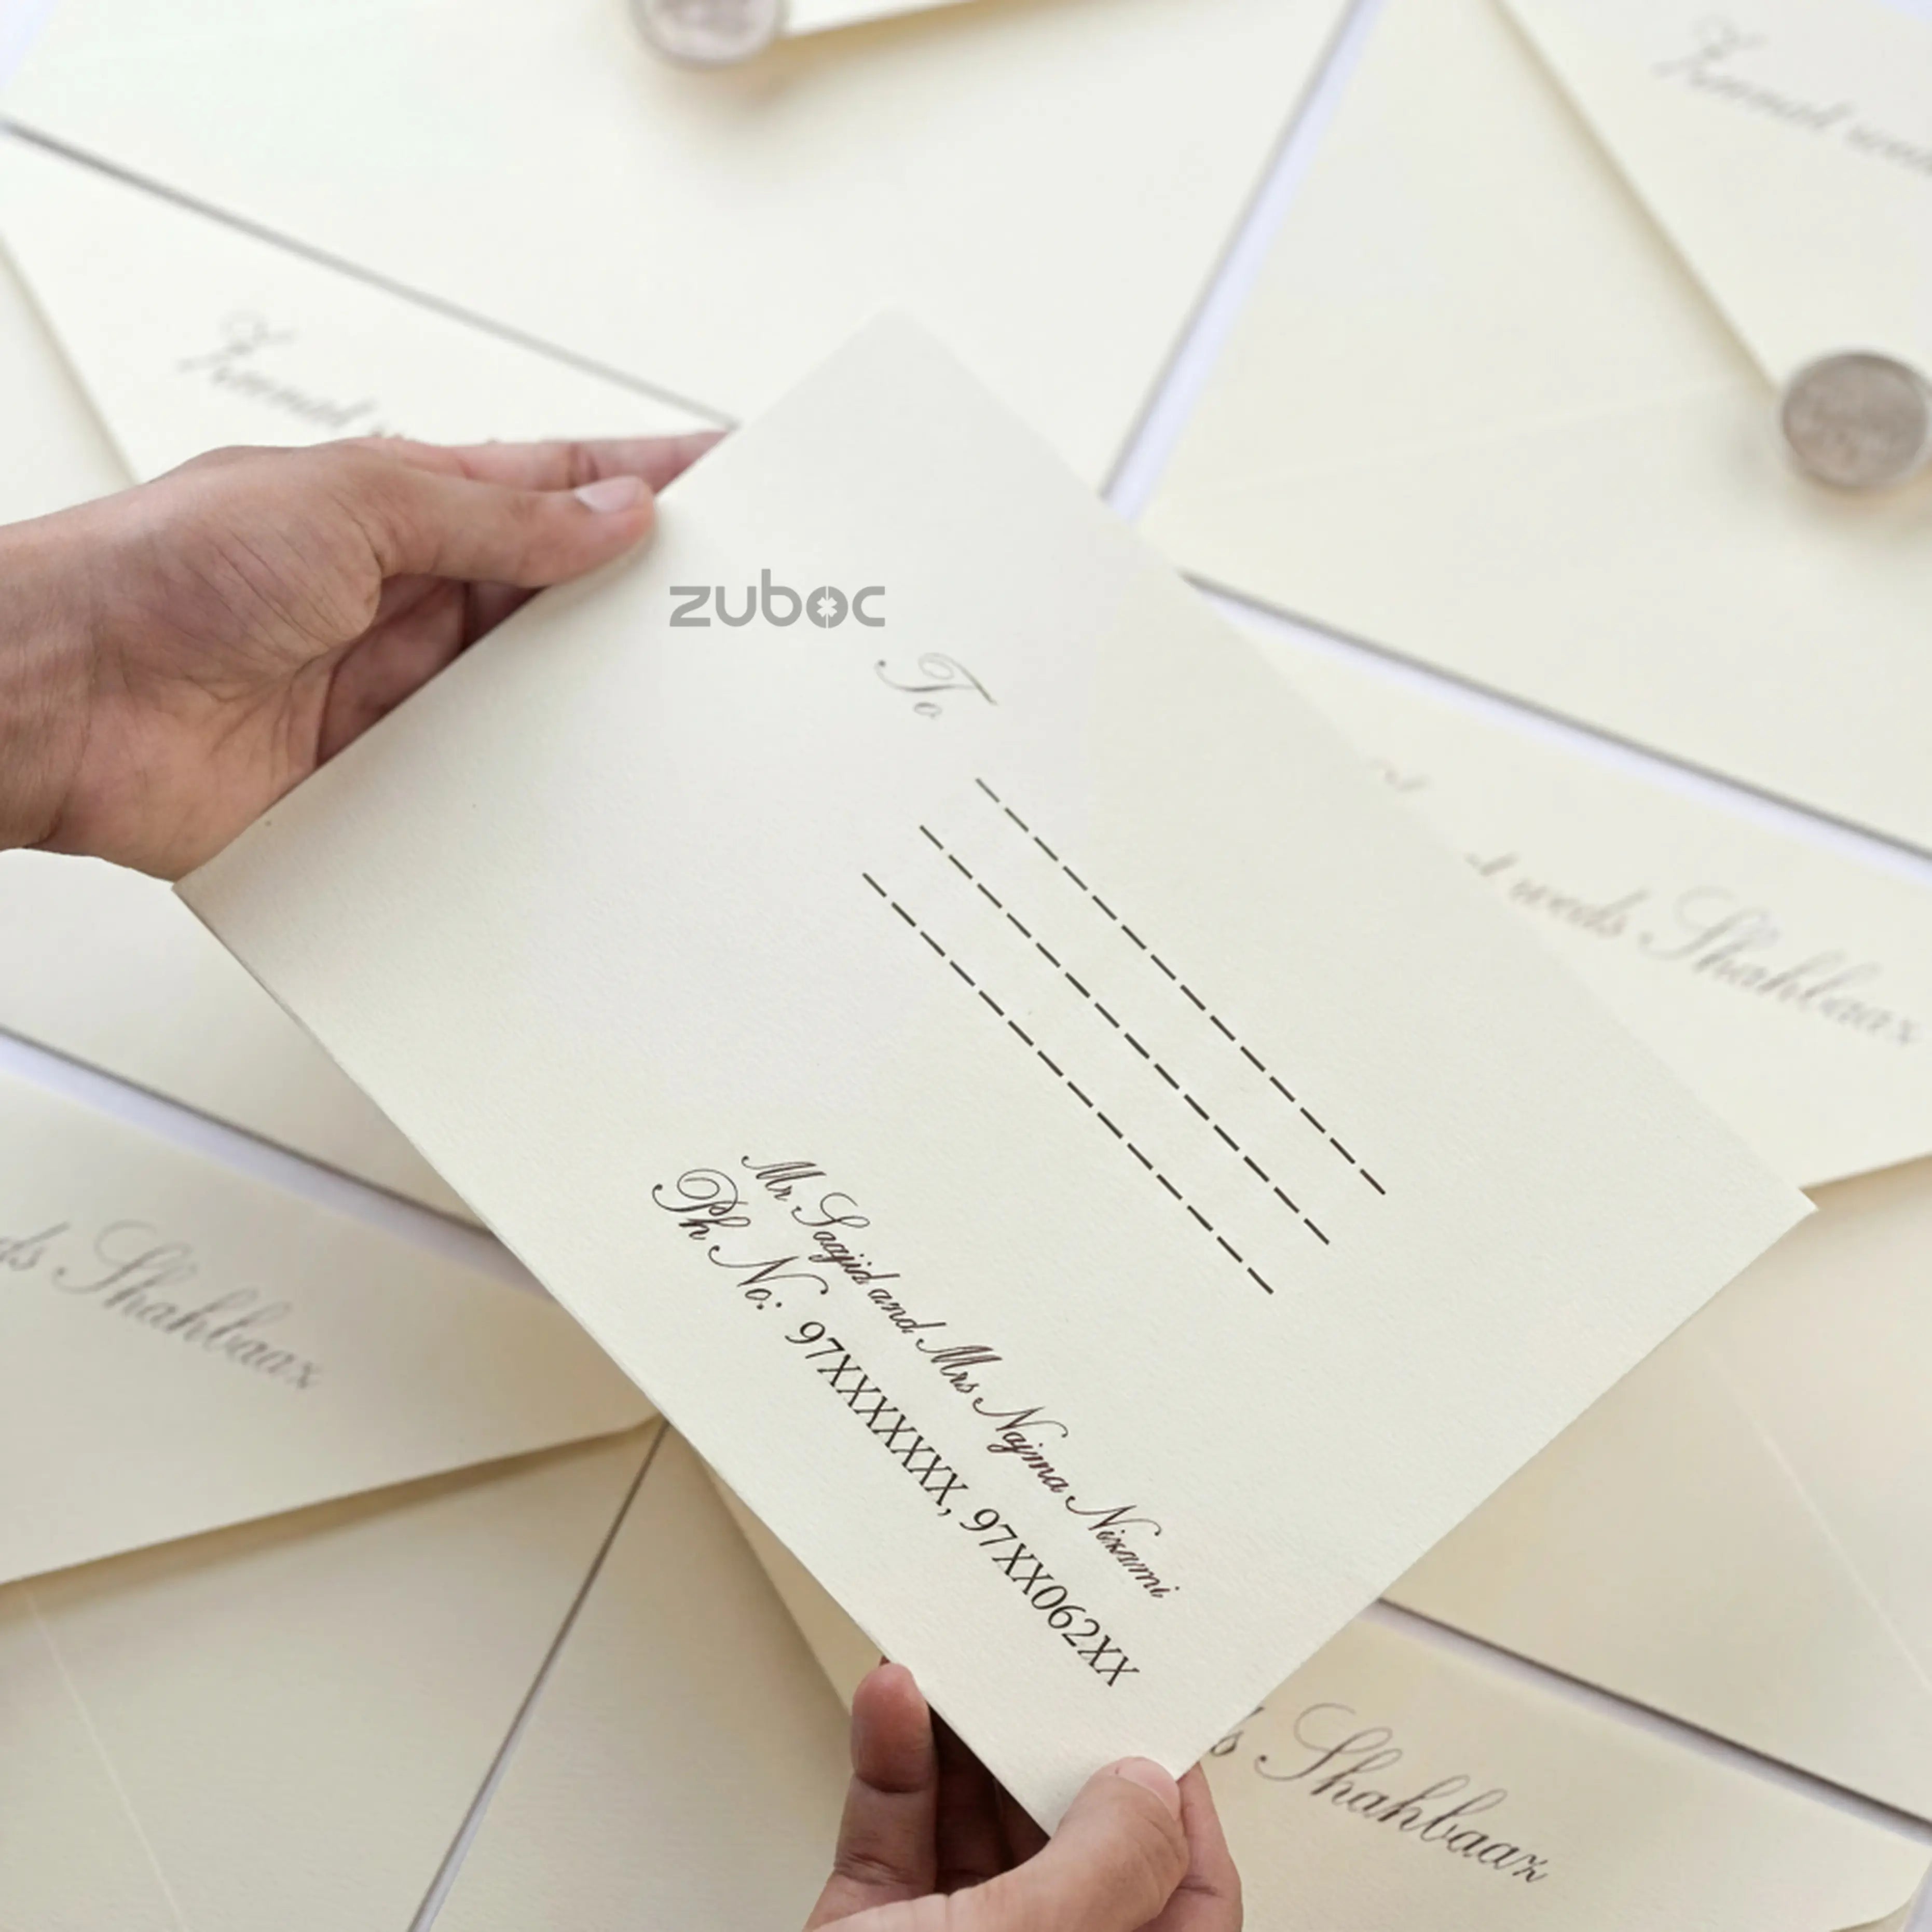 Zeenat weds
Zeenat
zuboc
To
weds Shahbaaz
Mr Saajid and Mrs Najma Nizami
Ph No: 97XXXXXXXX, 97XX062XX
Shahbaaz
Shahbaaz